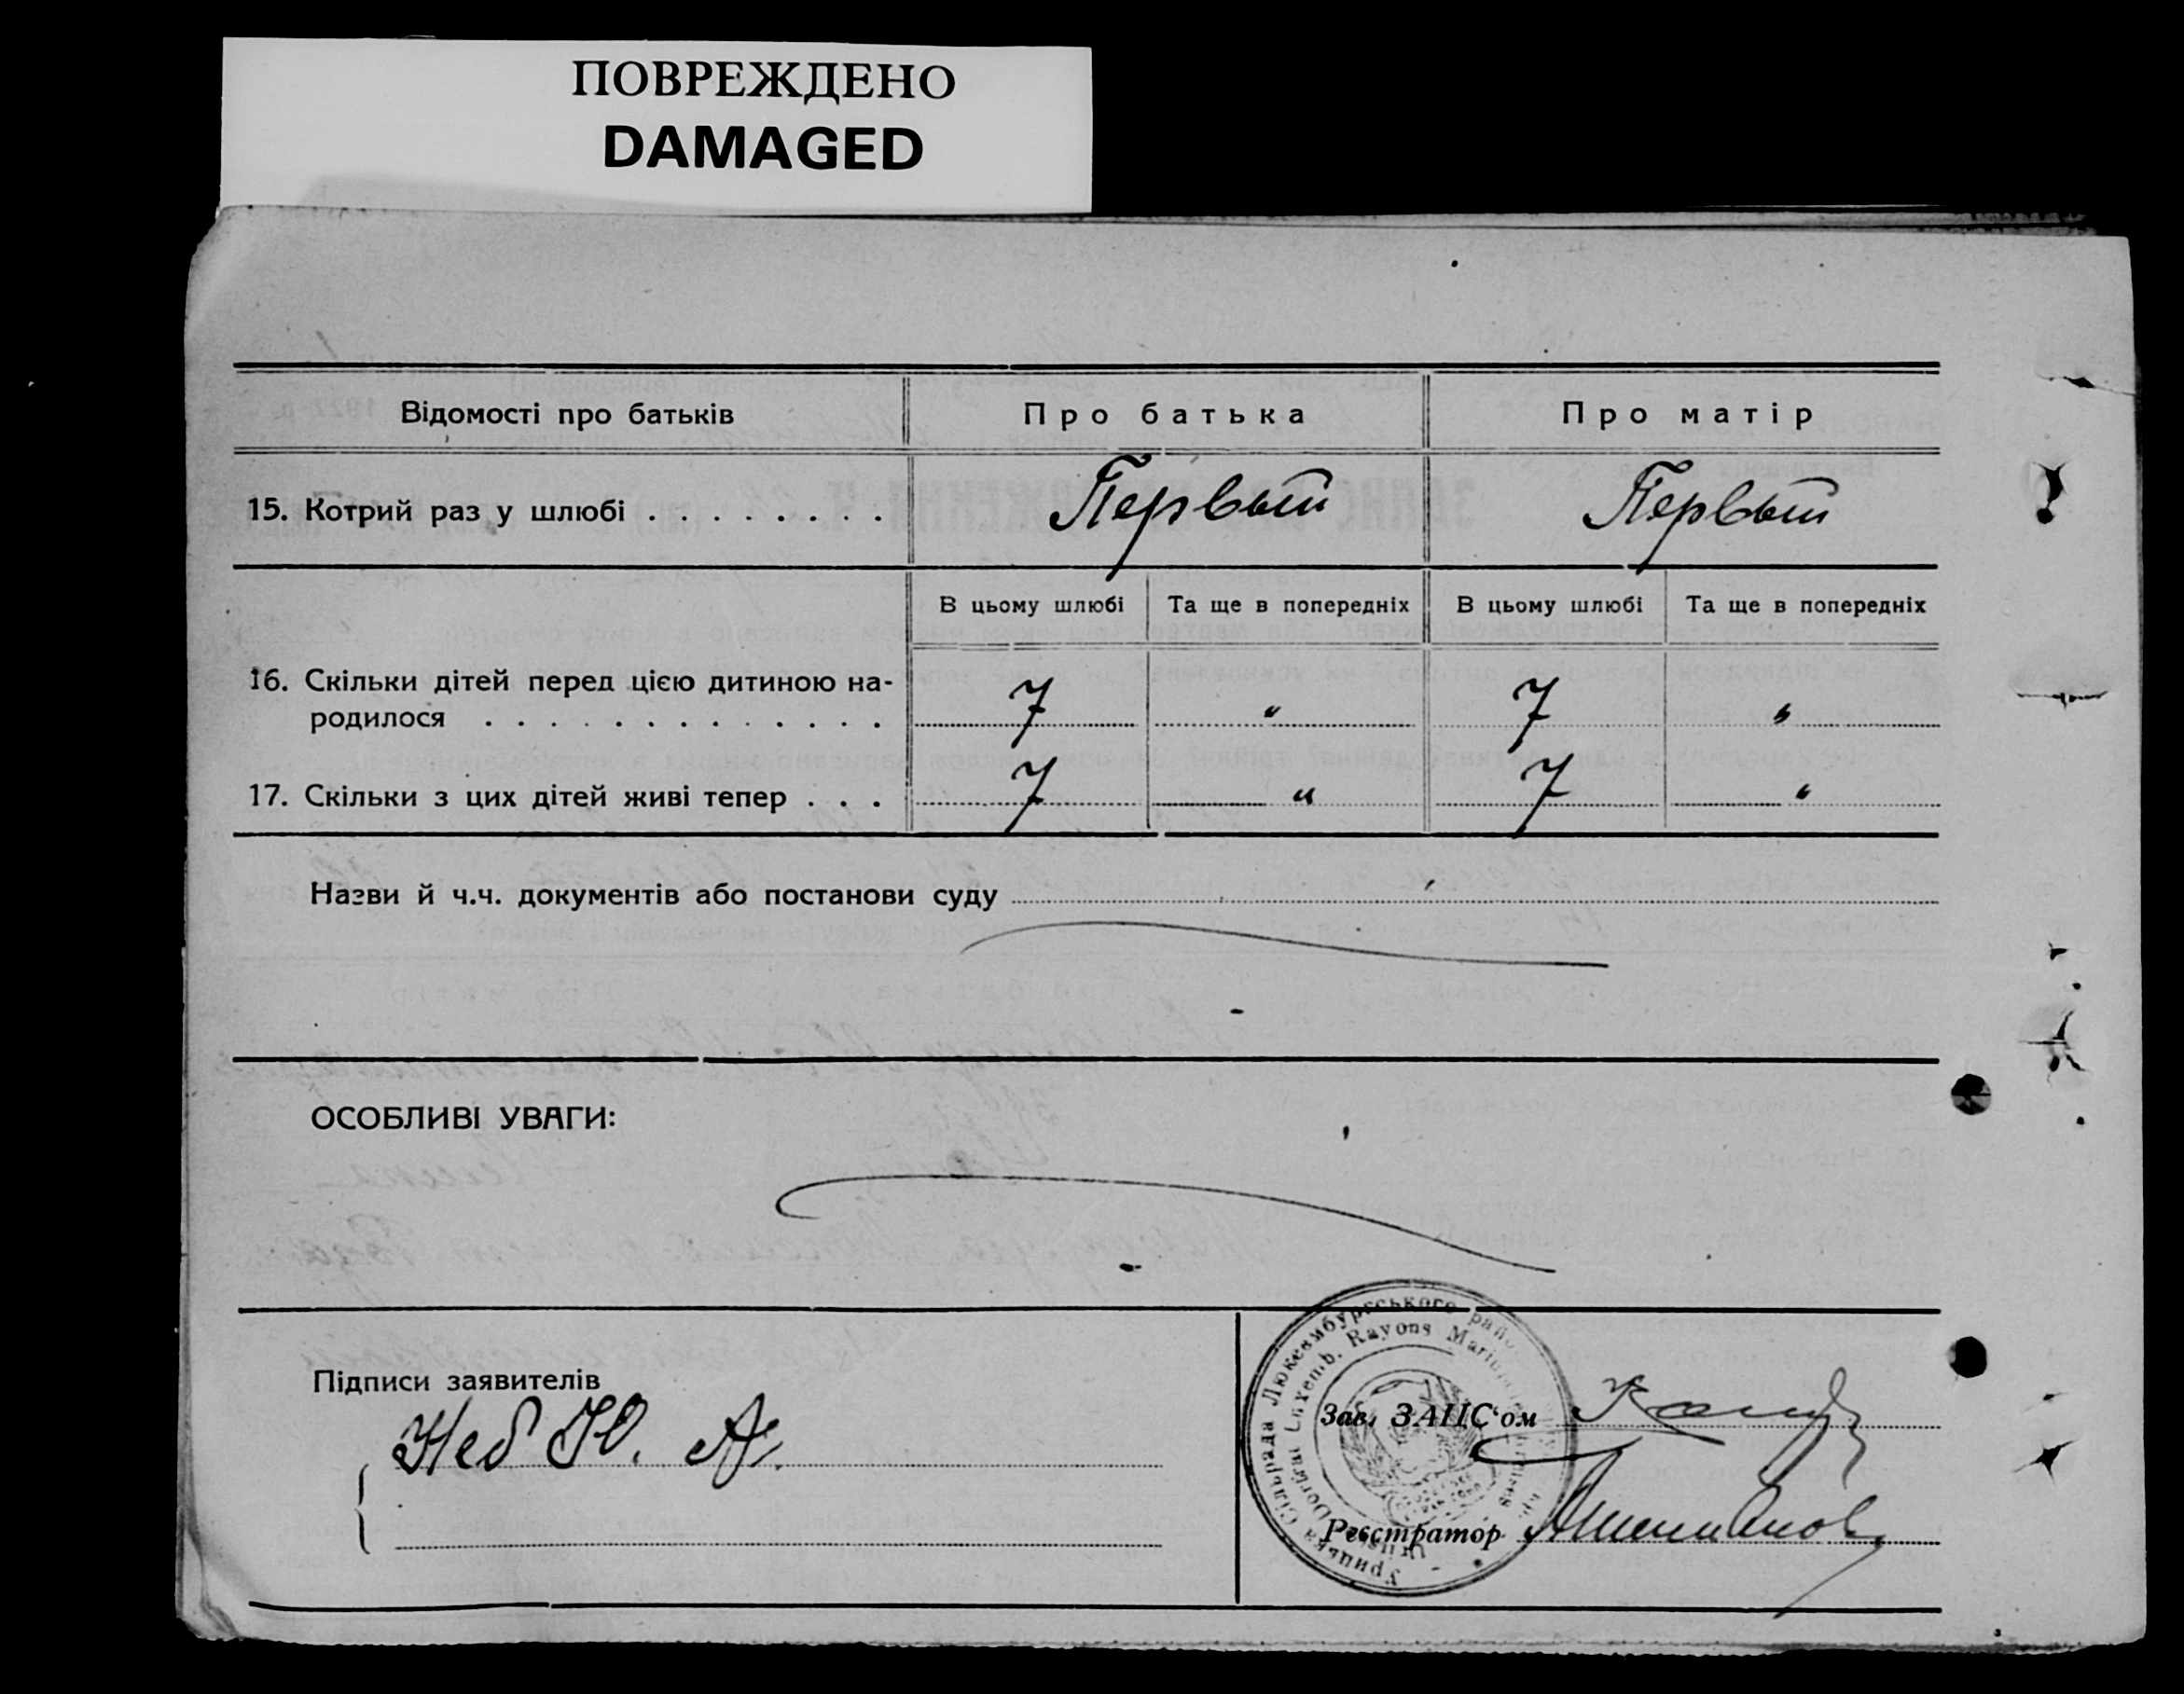 ПОВРЕЖДЕНО
DAMAGED
Відомості про батьків Про батька Про матір
15. Котрий раз у шлюбі . . . . . . . . Первый Первый
В цьому шлюбі Та ще в попередніх В цьому шлюбі Та ще в попередніх
16. Скільки дітей перед цією дитиною на-
родилося . . . . . . . . . . . . . 7 " 7 "
17. Скільки з цих дітей живі тепер . . . 7 " 7 "
Назви й ч.ч. документів або постанови суду
ОСОБЛИВІ УВАГИ:
Підписи заявителів
Ю. А.
Зав. ЗАГС'ом
Реєстратор
Урицька Сільрада Люксембургського
Luxemb. Rayons